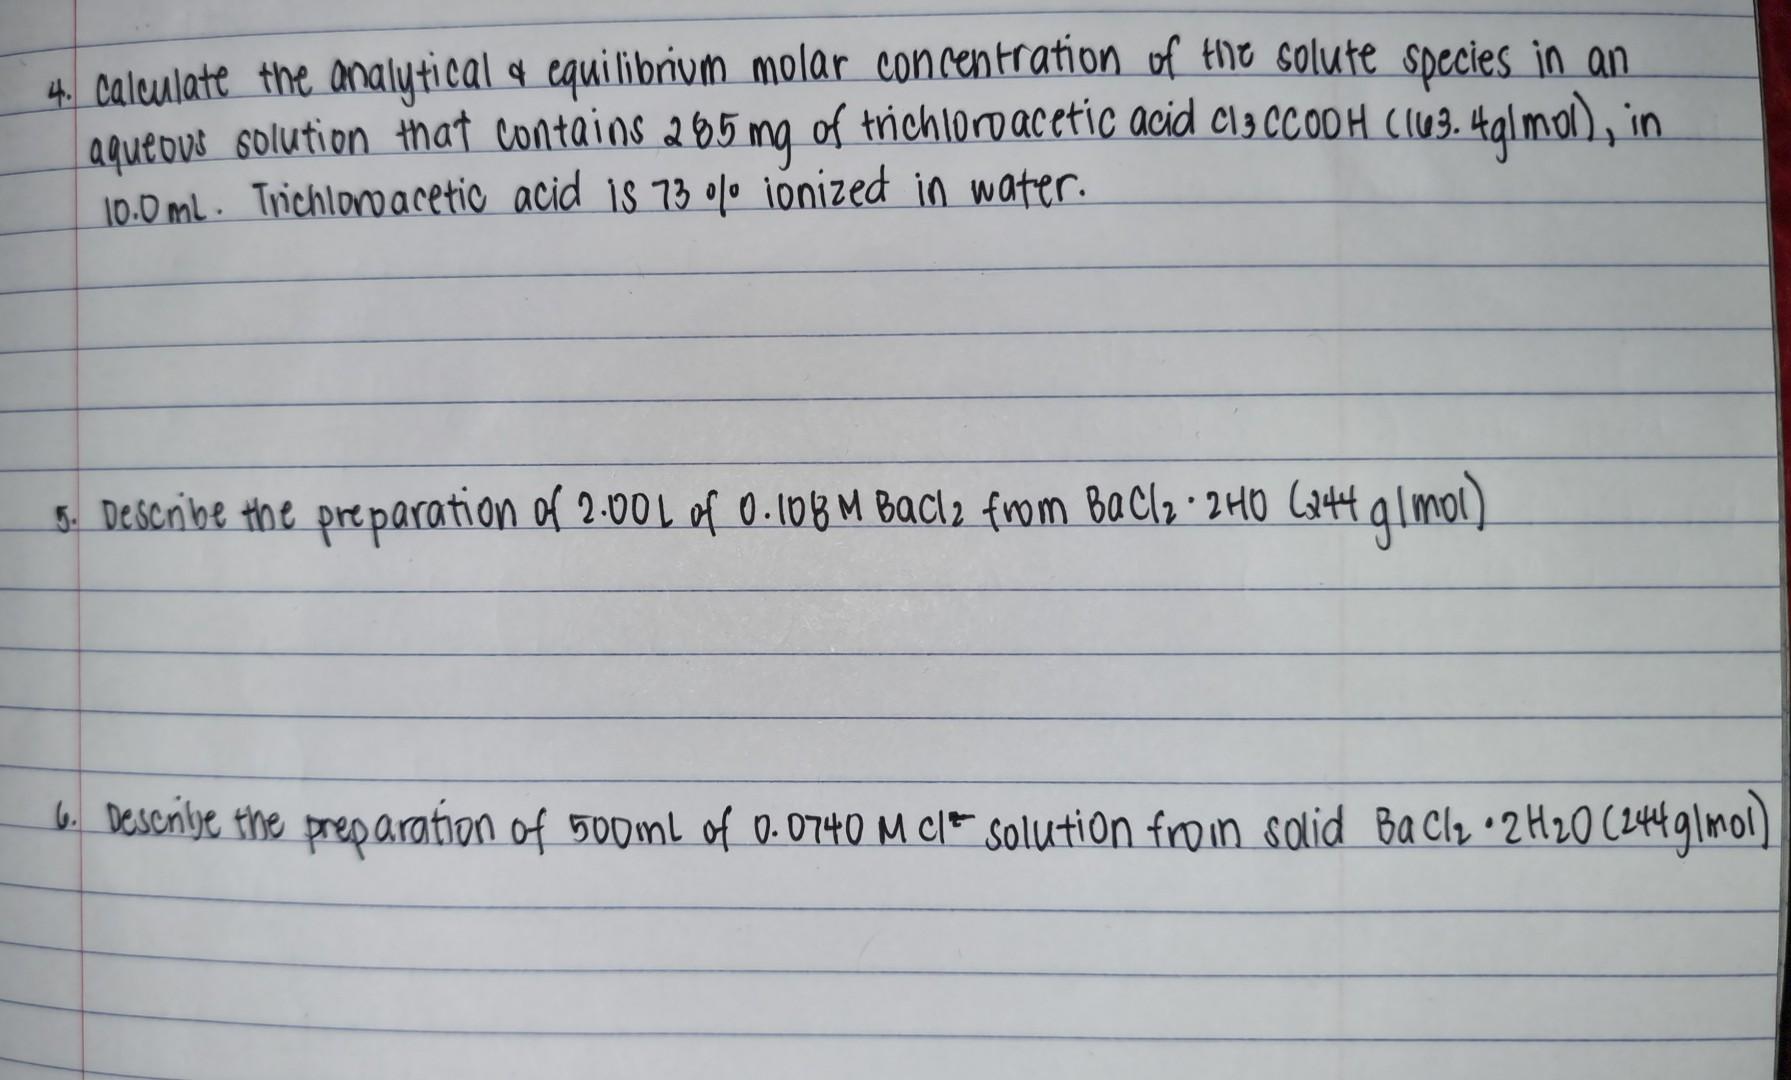 4. Calculate the analytical & equilibrium molar concentration of the solute species in an
aqueous solution that contains 285 mg of trichloroacetic acid Cl3CCOOH (163.4g/mol), in
10.0 mL. Trichloroacetic acid is 73 % ionized in water.
5. Describe the preparation of 2.00L of 0.108 M BaCl2 from BaCl2 · 2HO (244 g/mol)
6. Describe the preparation of 500mL of 0.0740 M Cl- solution from solid BaCl2 · 2H2O (244g/mol)